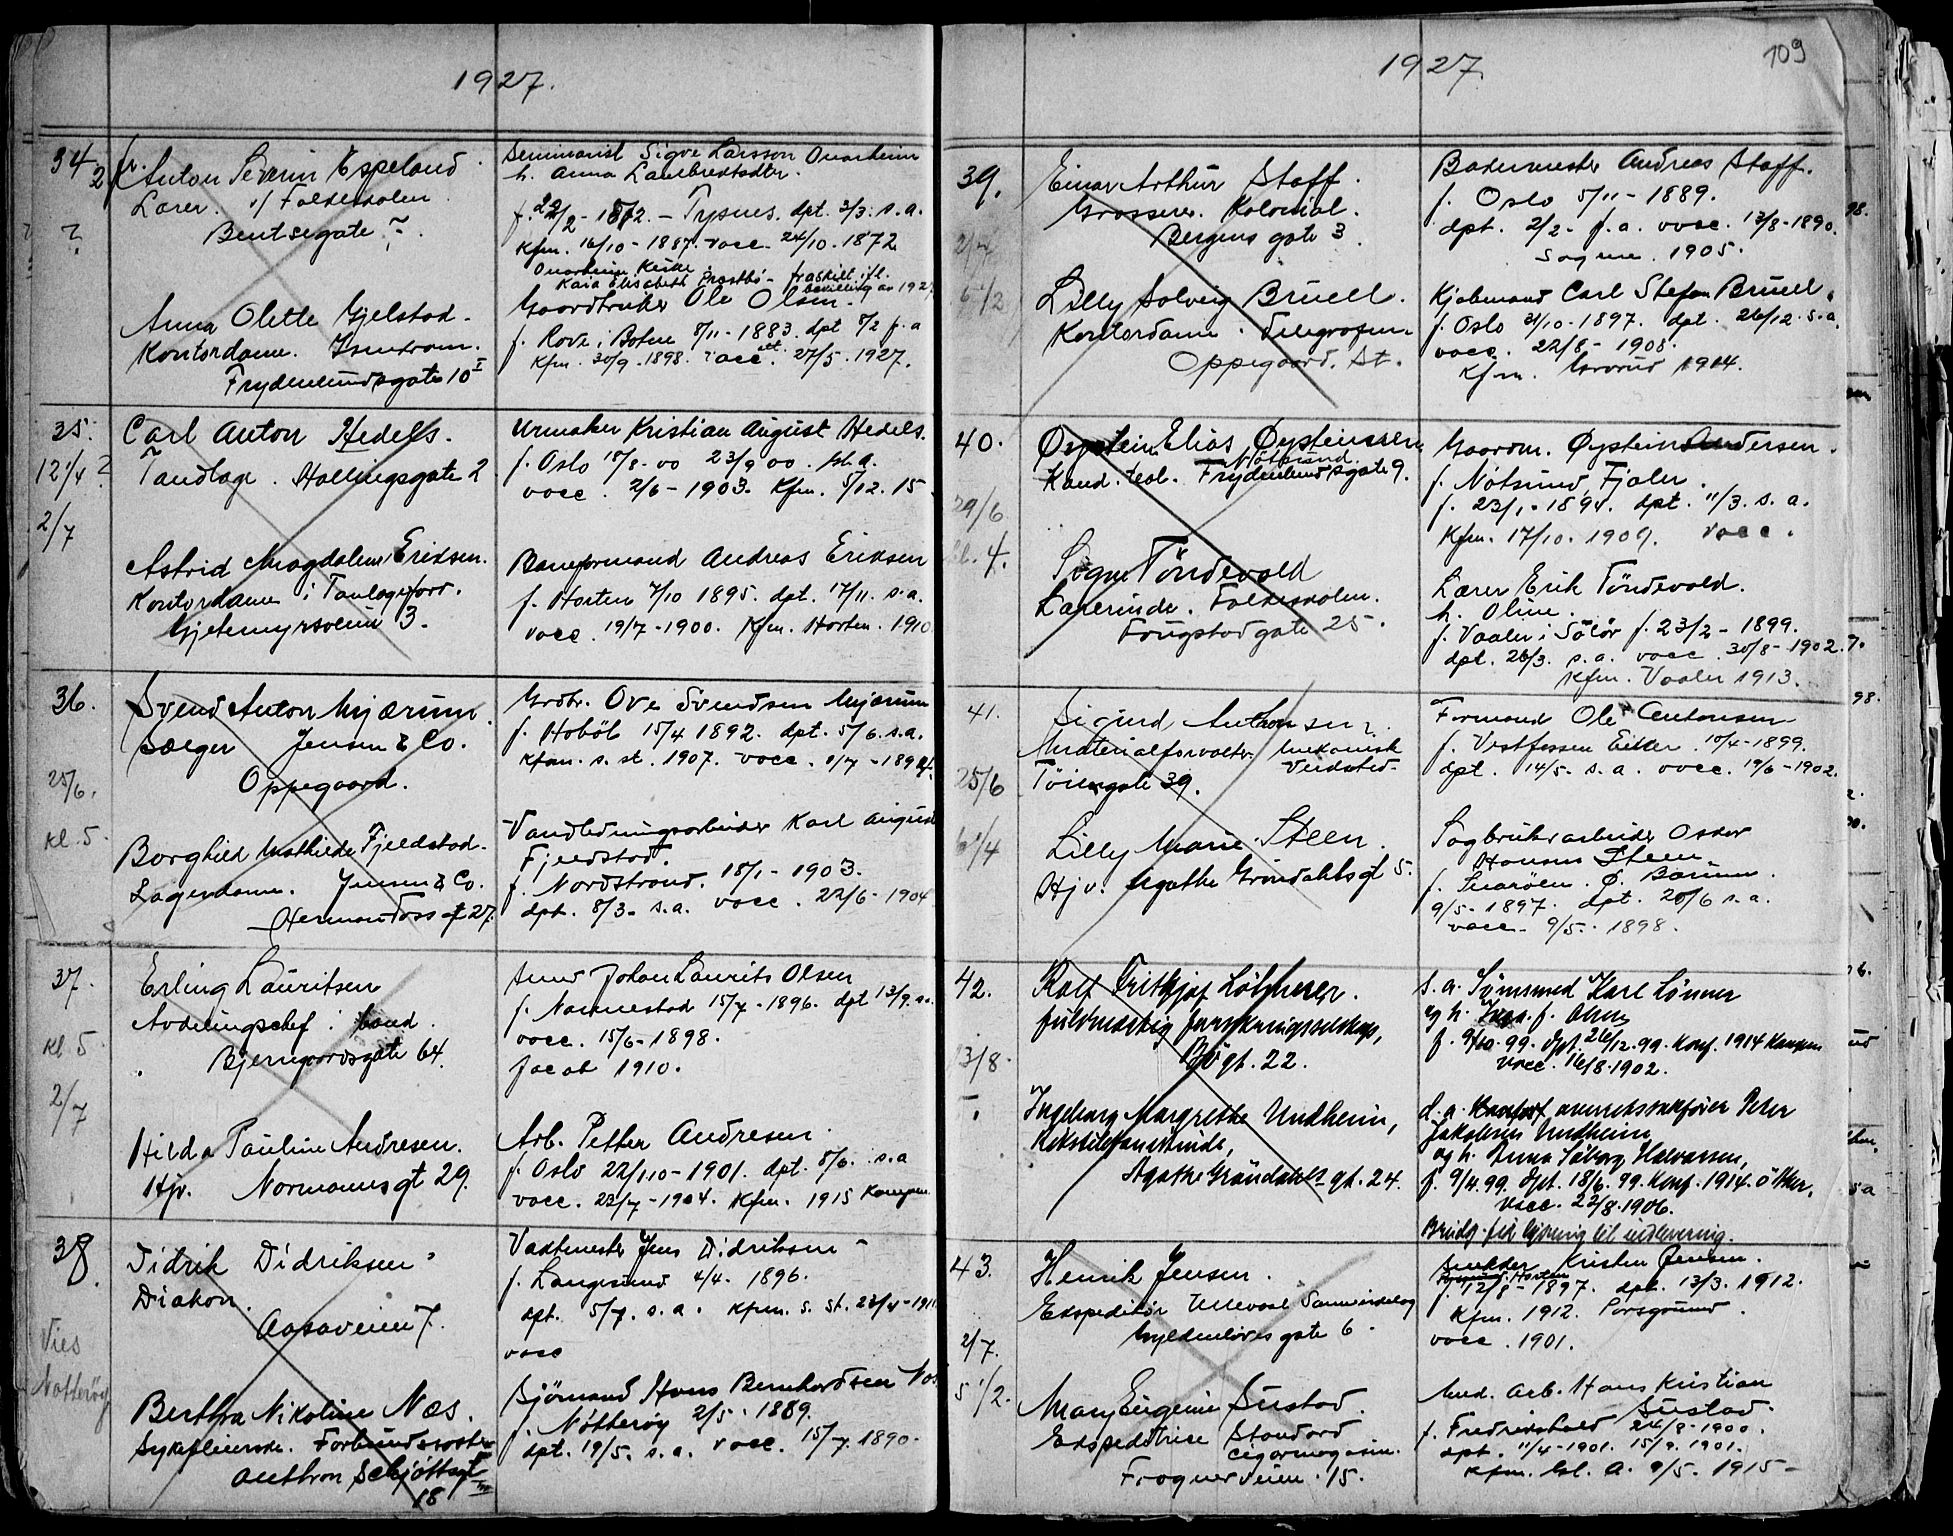 1927.
34.
fr. Anton Severin Espeland.
Lærer. v/ Folkeskolen
Bentsegate ?
?
Seminarist Sigve Larsson Onarheim
h. Anna
f. 22/2 - 1872. - Tysnes. dpt. 3/3. s.a.
Kfm. 16/10 - 1887. vacc. 24/10. 1872
Onarheim Kirke
Kaia Elisabeth - fraskilt ifl.
bevilling av 192
Anna Olette Gjelstad.
Kontordame.
Frydenlundsgate 10 I
Gaardbruker Ole Olsen.
f. Rove i Botne 8/11 - 1883. dpt 8/2 f.a
Kfm. 30/9. 1898. vacc. att. 27/5. 1927.
35.
12 1/4 ?
2/7
Carl Anton Hedels.
Tandlæge. Hallingsgate 2
Urmaker Kristian August Hedels.
f. Oslo 18/8. 00 23/9 00.
vacc. 2/6 - 1903. Kfm. 5/12. 15
Astrid Magdalene Eriksen.
Kontordame i Tanlægeforr.
Gjetemyrsveien 3.
Baneformand Andreas Eriksen
f. Horten 7/10 1895. dpt. 17/11. s.a.
vacc. 19/7 - 1900. Kfm. Horten. 1910
36.
25/6.
Kl. 5.
Svend Anton Mjærum.
Sælger Jensen & Co.
Oppegaard.
Grdbr. Ove Svendsen Mjærum
f. Hobøl 15/4 1892. dpt. 5/6. s.a.
Kfm. s. st. 1907. vacc. 1/7 - 189
Borghild Mathilde Fjeldstad.
Lagerdame. Jensen & Co.
Herman Foss gt 27.
Vandledningsarbeider Karl August
Fjeldstad.
f. Nordstrand. 18/1 - 1903.
dpt. 8/3. s.a. vacc. 22/6 - 1904
37.
Kl 5
2/7
Erling Lauritsen
Avdelingschef i
Bjerregaardsgate 64.
Johan Laurits Olsen
f. Nannestad 15/7 - 1896. dpt 13/9. s.a.
vacc. 15/6 - 1898.
Jacob 1910.
Hilda Pauline Andresen.
Hjv. Normannsgt 29.
Arb. Petter Andresen.
f. Oslo 22/10 - 1901. dpt. 8/6. s.a
vacc. 23/7 - 1904. Kfm. 1915 Kampen
38.
Vies
Nøtterøy
Didrik Didriksen
Diakon.
Aasaveien 7.
Vaktmester Jens Didriksen
f. Langesund 4/4. 1896.
dpt. 5/7. s.a. Kfm. s. st. 23/4 - 1911
vacc
Berthra Nikoline Næs.
Sykepleierske. Forbundssøster
Anthon Schjøttsgt
18
Sjømand Hans Bernhardsen Næs
f. Nøtterøy 2/5. 1889.
dpt. 19/5. s.a. vacc. 15/7. 1890.
1927.
109
39.
2/7
6 1/2
Einar Arthur Staff.
Grosserer. Kolonial.
Bergens gate 3.
Bademester Andreas Staff.
f. Oslo 5/11 - 1889.
dpt. 2/2. f.a. vacc. 13/8 - 1890.
Sogne. 1905.
Lilly Solveig Bruell.
Kontordame. Telegrafen.
Oppegaard. St.
Kjøbmand Carl Stefan Bruell.
f. Oslo 31/10 - 1897. dpt. 26/12. s.a.
vacc. 22/8 - 1908.
Kfm. Grorud 1914.
40.
29/6
Kl. 4.
Øystein Elias Øysteinssen
Nøtsund
Kand. teol. Frydenlundsgate 9.
Gaardm. Øystein Andersen.
f. Nøtsund, Fjaler.
f. 23/1 - 1894. dpt. 11/3. s.a.
Kfm. 17/10. 1909. vacc.
Signe Tøndevold
Lærerinde. Folkeskolen.
Fougstadgate 25.
Lærer Erik Tøndevold.
h. Oline.
f. Vaaler i Solør f. 23/2 - 1899.
dpt. 26/3. s.a. vacc. 30/8 - 1902.
Kfm. Vaaler 1913.
41.
25/6
6 1/4
Sigurd Antonsen.
Materialforvalter. Mekanisk
Verksted.
Tøiengate 39.
Formand Ole Antonsen
f. Vestfossen Eiker. 10/4 - 1899.
dpt. 14/5. s.a. vacc. 19/6 - 1902.
Lilly Marie Steen.
Hjv. Agathe Grøndahlsgt 5.
Sagbruksarbeider Oskar
Hansen Steen.
f. Snarøen. Ø. Bærum.
9/5. 1897. dpt. 20/6 s.a.
vacc. 9/5. 1898.
42.
13/8.
Rolf Frithjof
fuldmægtig forsikringsselskap,
gt. 22.
s. a. Karl Lønner
og h. f. Olsen
f. 9/10. 99. dpt. 26/12. 99. Konf. 1914 Kampen
vacc. 16/8. 1902.
Ingeborg Margrethe Undheim,
Agathe Grøndahls gt. 24.
d. a. Peter
Jakobsen Undheim
og h. Anna Halvorsen,
f. 9/4. 99. dpt. 18/6. 99. Konf. 1914.
vacc. 22/8. 1906.
Brudg. til indlevering.
43.
2/7.
5 1/2.
Henrik Jensen.
Ekspeditør Ullevaal Samvirkelag
Gyldenløves gate 6.
Kristen Jensen.
f. 12/8 - 1897. dpt. 13/3. 1912.
Kfm. 1912. Porsgrund.
vacc. 1901.
Mary Eugenie Sustad.
Ekspeditrice Standard
Cigarmagasin.
Frognerveien 15.
Arb. Hans Kristian
Sustad.
f. Fredrikshald 24/8 - 1900.
dpt. 11/4 - 1901. 15/9. 1901.
Kfm. Gl. A. 9/5. 1915 -